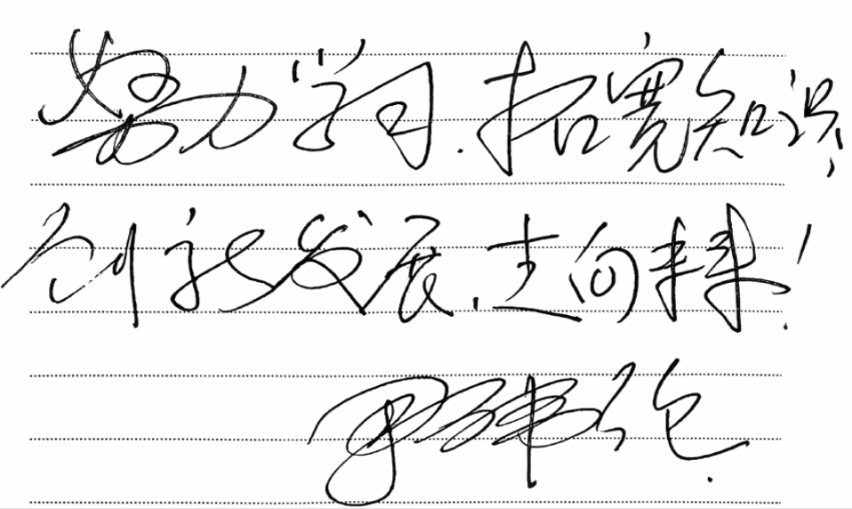 努力学习，拓宽知识，
创新发展，走向未来！